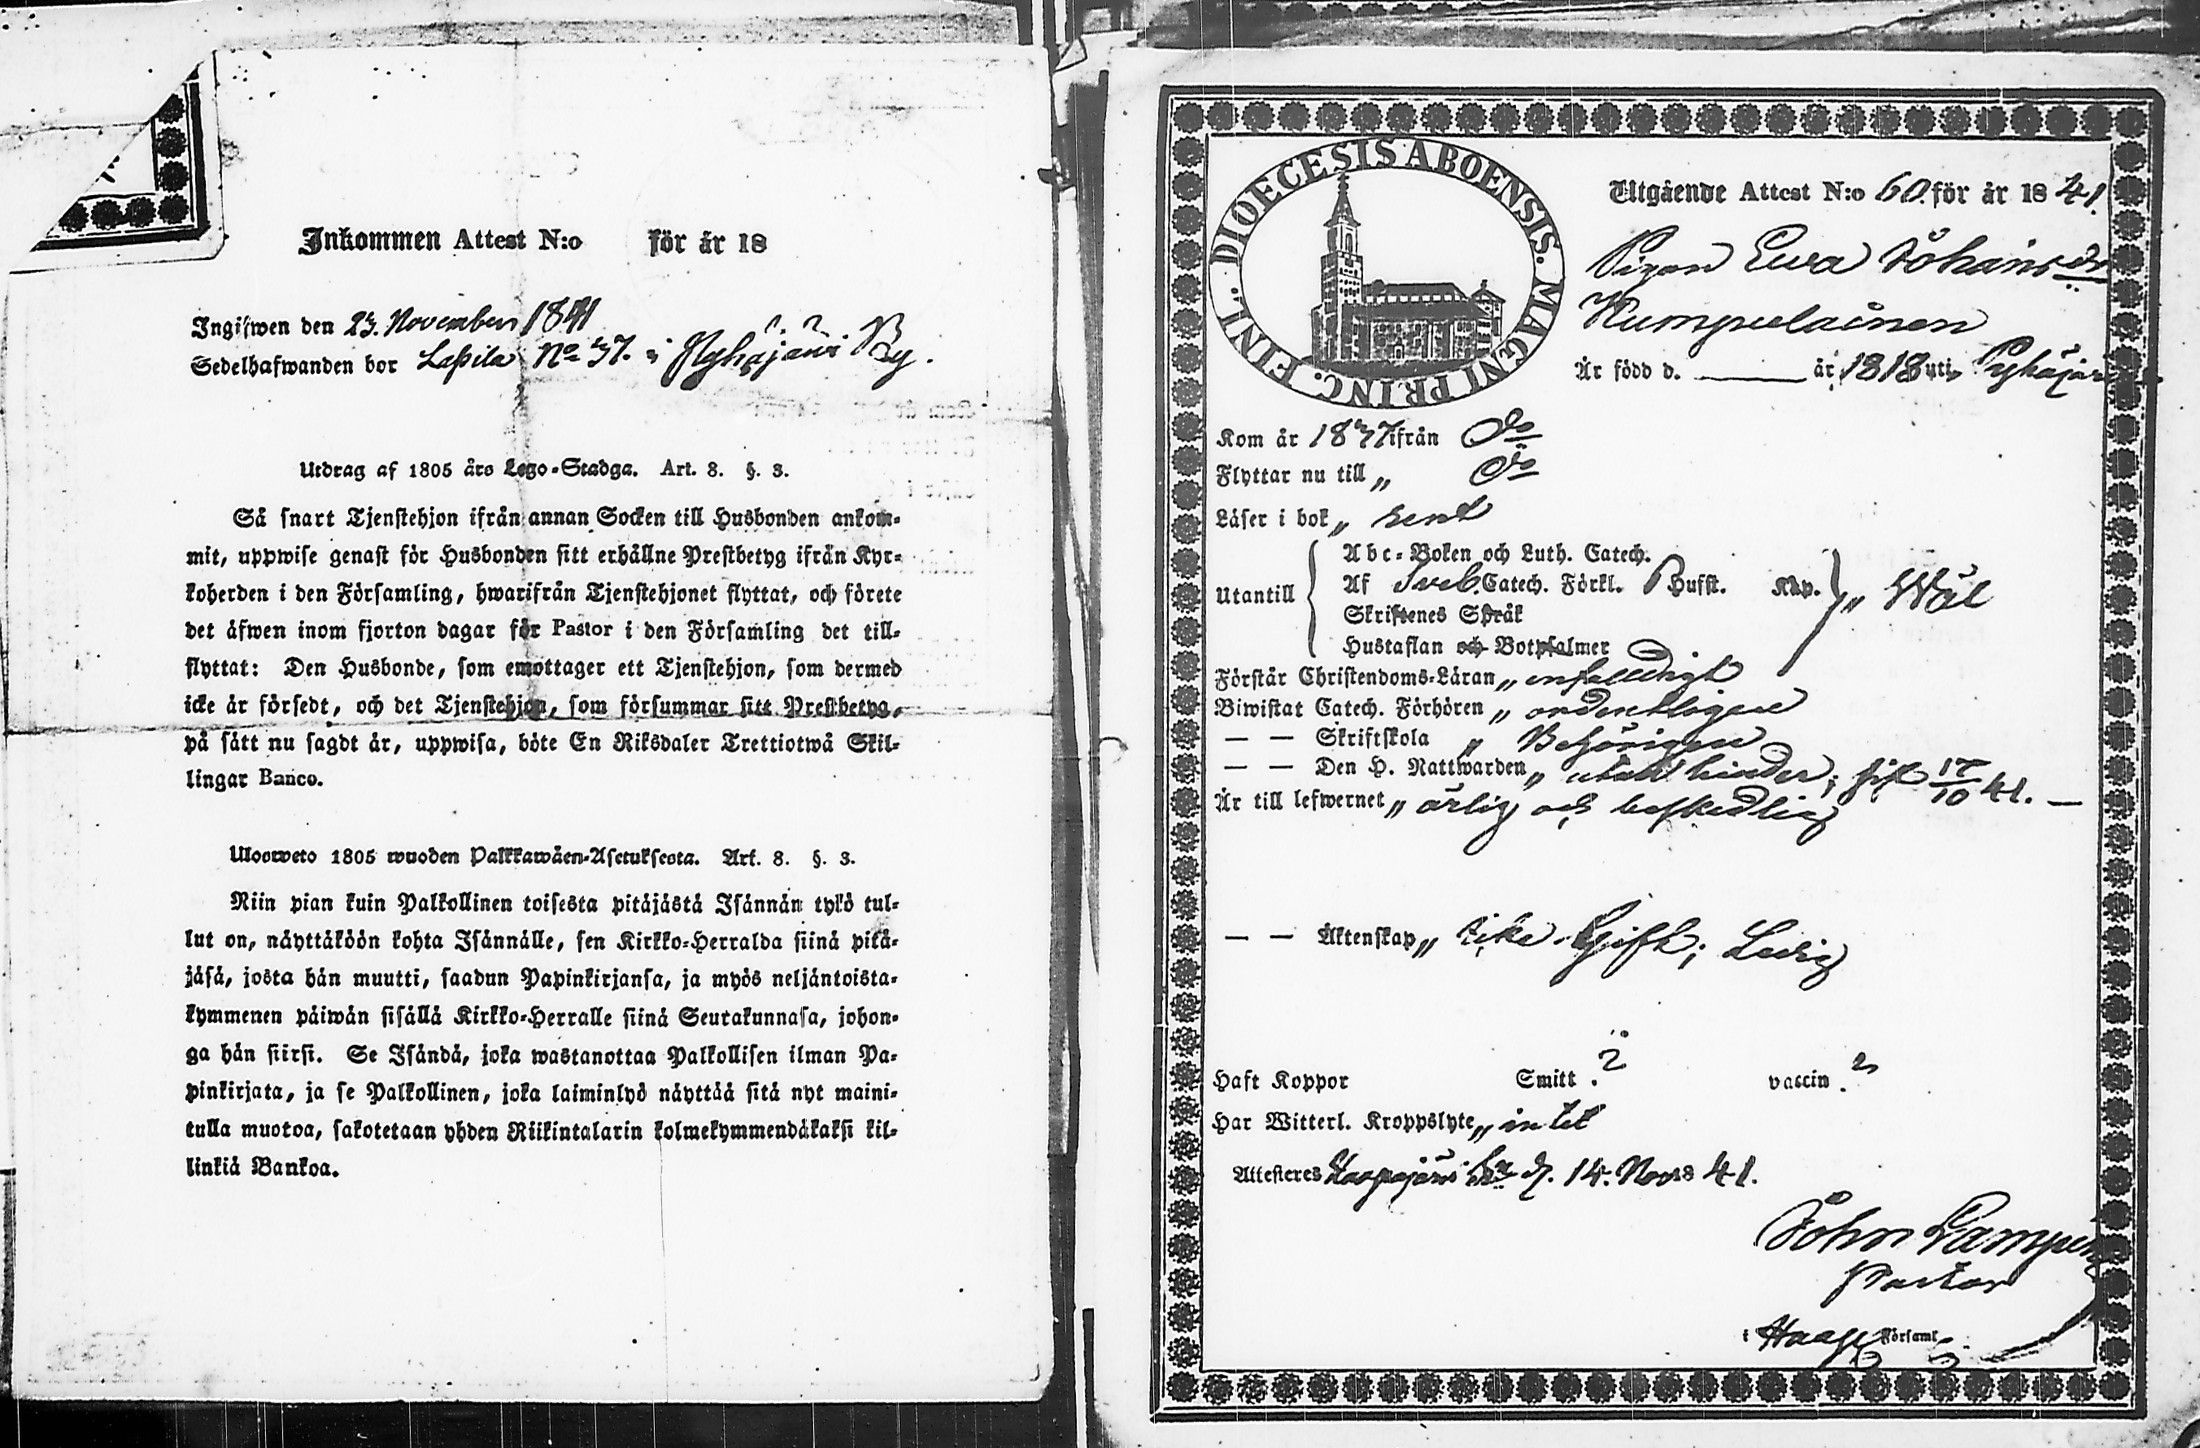 Inkommen Attest N:o för år 18
Ingifwen den 23. November 1841
Sedelhafwanden bor Lapila No 37. i Pyhäjärvi By.
Utdrag af 1805 års Lego-Stadga. Art. 8. §. 3.
Så snart Tjenstehjon ifrån annan Socken till Husbonden ankom-
mit, uppwise genast för Husbonden sitt erhållne Prestbetyg ifrån Kyr-
koherden i den Församling, hwarifrån Tjenstehjonet flyttat, och förete
det äfwen inom fjorton dagar för Pastor i den Församling det till-
flyttat: Den Husbonde, som emottager ett Tjenstehjon, som dermed
icke är försedt, och det Tjenstehjon, som försummar sitt Prestbetyg,
på sätt nu sagdt är, uppwisa, böte En Riksdaler Trettiotwå Skil-
lingar Banco.
Uloosweto 1805 wuoden Palkkawäen-Asetuksesta. Art. 8. §. 3.
Niin pian kuin Palkollinen toisesta pitäjästä Isännän tykö tul-
lut on, näyttäköön kohta Isännälle, sen Kirkko-Herralda siinä pitä-
jäsä, josta hän muutti, saadun Papinkirjansa, ja myös neljäntoista-
kymmenen päiwän sisällä Kirkko-Herralle siinä Seurakunnasa, johon-
ga hän siirsi. Se Isändä, joka wastanottaa Palkollisen ilman Pa-
pinkirjata, ja se Palkollinen, joka laiminlyö näyttää sitä nyt maini-
tulla muotoa, sakotetaan yhden Riikintalarin kolmekymmendäkaksi kil-
linkiä Bankoa.
DIOECESIS ABOENSIS. MAGNI PRINC. FINL.
Utgående Attest N:o 60. för år 1841.
Pigan Ewa Johansdr
Kumpulainen
Är född d. ______ år 1818 uti Pyhäjär
Kom år 1837 ifrån Do
Flyttar nu till „ Do
Läser i bok „ rent
Utantill
Abc-Boken och Luth. Catech.
Af Sveb. Catech. Förkl. Hufst. Kap.
Skriftenes Språk
Hustaflan och Botpsalmer
„ Wäl
Förstår Christendoms-Läran „ enfaldigt
Biwistat Catech. Förhören „ ordentligen
— — Skriftskola „ Behörigen
— — Den H. Nattwarden „ utan hinder; sist 17/10 41. —
Är till lefwernet „ ärlig och beskedlig
— — Äktenskap „ icke Gift; Ledig
Haft Koppor Smitt . ? vaccin . ?
Har Witterl. Kroppslyte „ intet
Attesteres Haapajärvi d. 14. Nov. 1841.
John Lampén
Pastor
i Haapj. Församl.